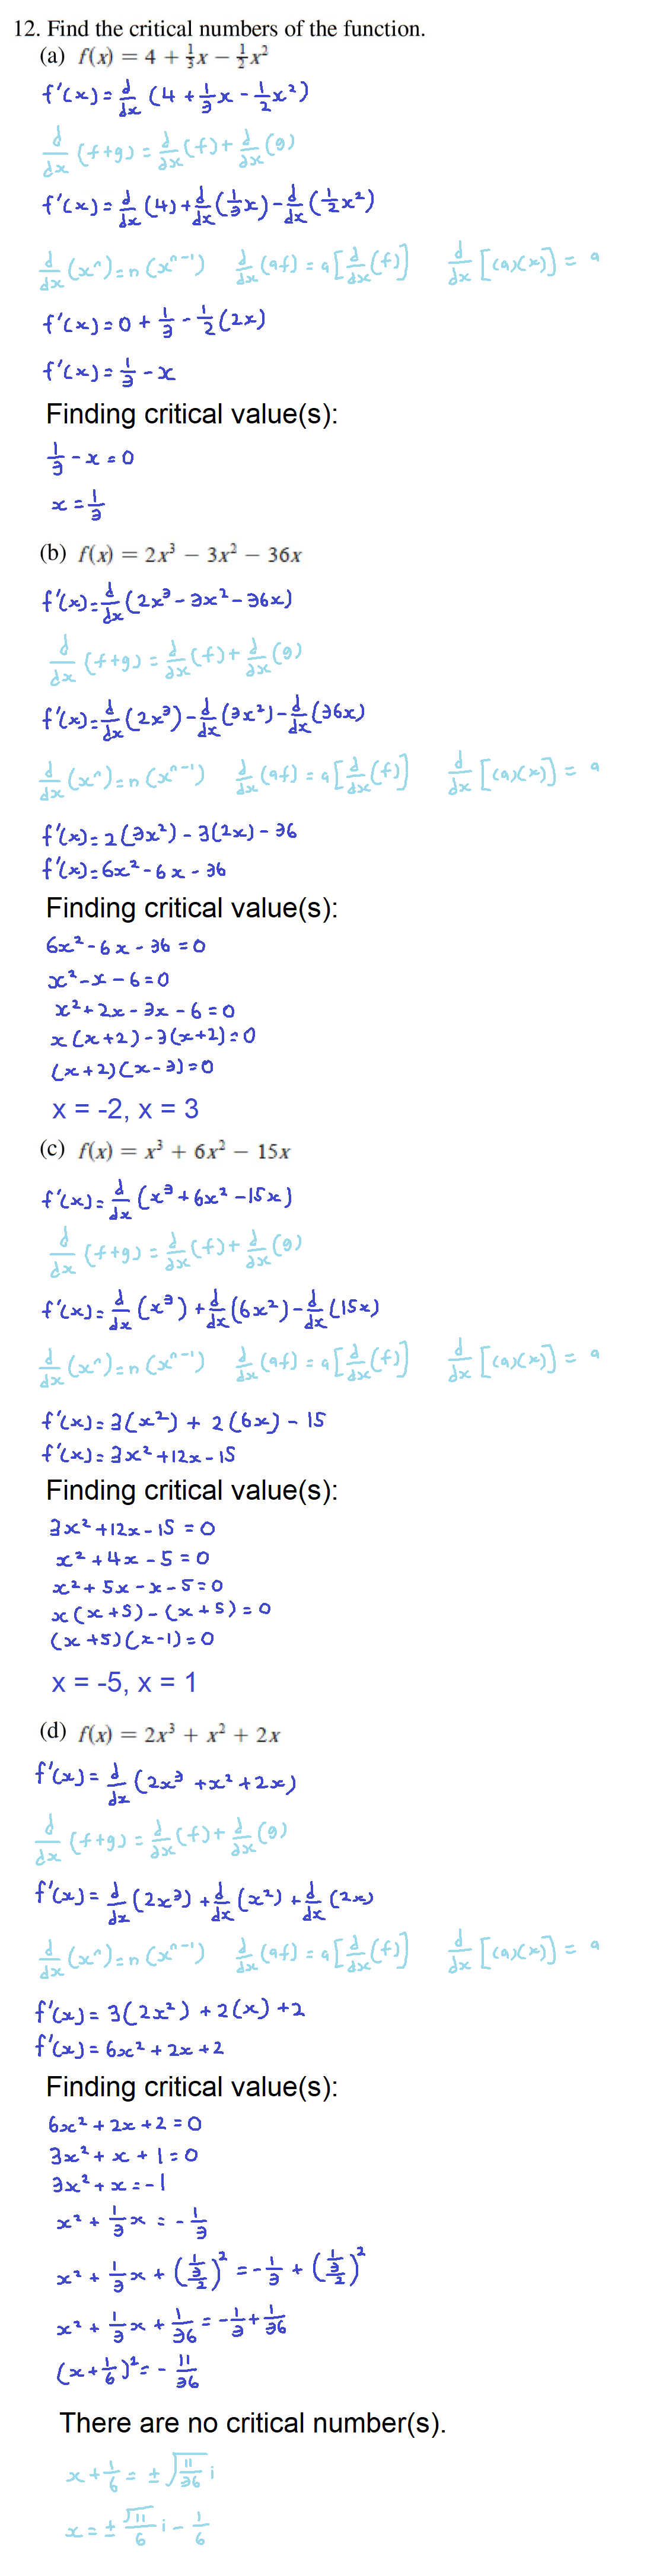 12. Find the critical numbers of the function.
(a) f(x) = 4 + 1/3 x − 1/2 x²
f'(x) = d/dx (4 + 1/3 x - 1/2 x²)
d/dx (f+g) = d/dx (f) + d/dx (g)
f'(x) = d/dx (4) + d/dx (1/3 x) - d/dx (1/2 x²)
d/dx (xⁿ) = n(xⁿ⁻¹) d/dx (af) = a[d/dx (f)] d/dx [(a)(x)] = a
f'(x) = 0 + 1/3 - 1/2 (2x)
f'(x) = 1/3 - x
Finding critical value(s):
1/3 - x = 0
x = 1/3
(b) f(x) = 2x³ − 3x² − 36x
f'(x) = d/dx (2x³ - 3x² - 36x)
d/dx (f+g) = d/dx (f) + d/dx (g)
f'(x) = d/dx (2x³) - d/dx (3x²) - d/dx (36x)
d/dx (xⁿ) = n(xⁿ⁻¹) d/dx (af) = a[d/dx (f)] d/dx [(a)(x)] = a
f'(x) = 2(3x²) - 3(2x) - 36
f'(x) = 6x² - 6x - 36
Finding critical value(s):
6x² - 6x - 36 = 0
x² - x - 6 = 0
x² + 2x - 3x - 6 = 0
x(x+2) - 3(x+2) = 0
(x+2)(x-3) = 0
x = -2, x = 3
(c) f(x) = x³ + 6x² − 15x
f'(x) = d/dx (x³ + 6x² - 15x)
d/dx (f+g) = d/dx (f) + d/dx (g)
f'(x) = d/dx (x³) + d/dx (6x²) - d/dx (15x)
d/dx (xⁿ) = n(xⁿ⁻¹) d/dx (af) = a[d/dx (f)] d/dx [(a)(x)] = a
f'(x) = 3(x²) + 2(6x) - 15
f'(x) = 3x² + 12x - 15
Finding critical value(s):
3x² + 12x - 15 = 0
x² + 4x - 5 = 0
x² + 5x - x - 5 = 0
x(x+5) - (x+5) = 0
(x+5)(x-1) = 0
x = -5, x = 1
(d) f(x) = 2x³ + x² + 2x
f'(x) = d/dx (2x³ + x² + 2x)
d/dx (f+g) = d/dx (f) + d/dx (g)
f'(x) = d/dx (2x³) + d/dx (x²) + d/dx (2x)
d/dx (xⁿ) = n(xⁿ⁻¹) d/dx (af) = a[d/dx (f)] d/dx [(a)(x)] = a
f'(x) = 3(2x²) + 2(x) + 2
f'(x) = 6x² + 2x + 2
Finding critical value(s):
6x² + 2x + 2 = 0
3x² + x + 1 = 0
3x² + x = -1
x² + 1/3 x = - 1/3
x² + 1/3 x + ((1/3)/2)² = - 1/3 + ((1/3)/2)²
x² + 1/3 x + 1/36 = - 1/3 + 1/36
(x + 1/6)² = - 11/36
There are no critical number(s).
x + 1/6 = ± √(11/36) i
x = ± √11/6 i - 1/6